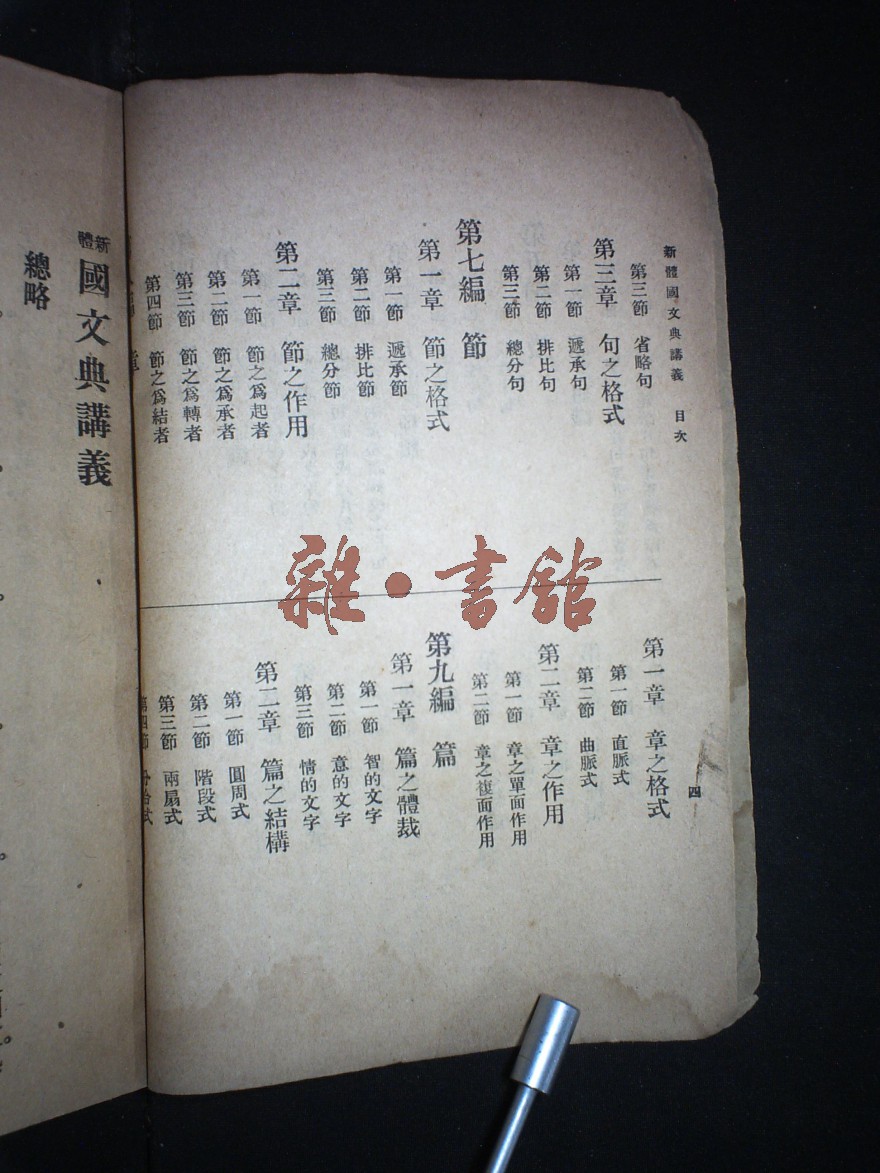 新體國文典講義 目次
四
第三節 省略句
第三章 句之格式
第一節 遞承句
第二節 排比句
第三節 總分句
第七編 節
第一章 節之格式
第一節 遞承節
第二節 排比節
第三節 總分節
第二章 節之作用
第一節 節之爲起者
第二節 節之爲承者
第三節 節之爲轉者
第四節 節之爲結者
第一章 章之格式
第一節 直脈式
第二節 曲脈式
第二章 章之作用
第一節 章之單面作用
第二節 章之複面作用
第九編 篇
第一章 篇之體裁
第一節 智的文字
第二節 意的文字
第三節 情的文字
第二章 篇之結構
第一節 圓周式
第二節 階段式
第三節 兩扇式
第四節
新體國文典講義
總略
雜·書館